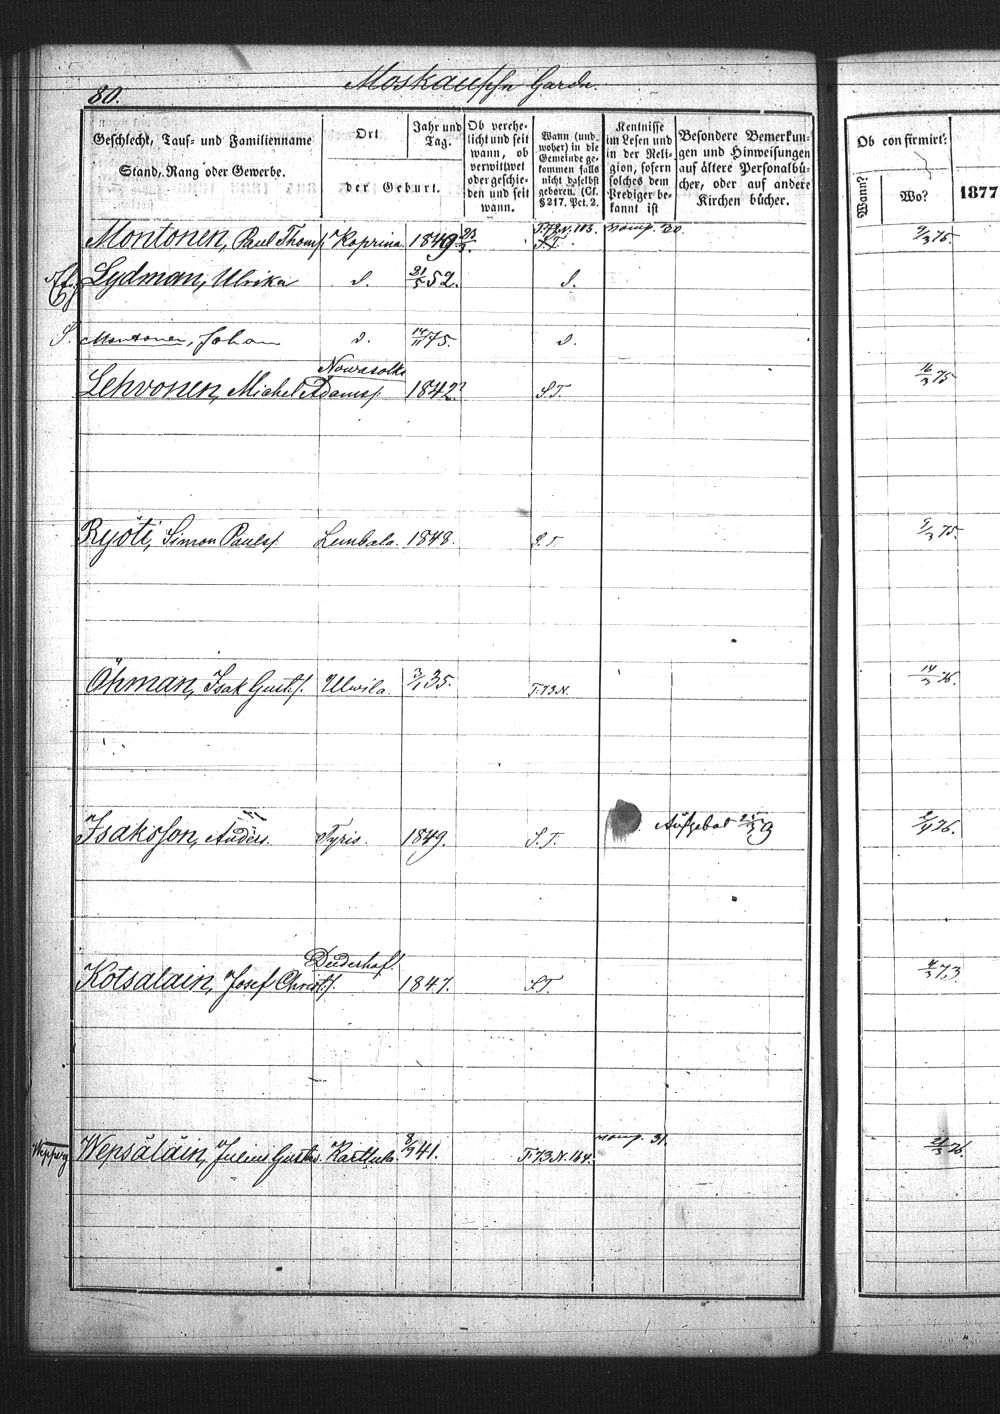 80. Moskausche Garde.
Geschlecht, Tauf- und Familienname
Stand, Rang oder Gewerbe.
Ort
der Geburt.
Jahr und
Tag.
Ob verehe-
licht und seit
wann, ob
verwittwet
oder geschie-
den und seit
wann.
Wann (und
woher) in die
Gemeinde ge-
kommen falls
nicht daselbst
geboren. (Cf.
§ 217. Pct. 2.
Kentnisse
im Lesen und
in der Reli-
gion, sofern
solches dem
Prediger be-
kannt ist
Besondere Bemerkun-
gen und Hinweisungen
auf ältere Personalbü-
cher, oder auf andere
Kirchen bücher.
Ob confirmirt:
Wann?
Wo?
1877
Montonen, Paul Thoms. Koprina. 1849 23/3. T.73.N.113. S.T. 9/3 75.
Lydman, Ulrika d. 21/5 52. d.
S. Montonen, Johan d. 14/11 75. d.
Lehvonen, Michel Adams. Nowasolka 1842. S.T. 16/3 75
Ryöti, Simon Pauls. Lembala. 1848. S.T. 9/3 75.
Öhman, Isak Gust.s. Ulwila. 3/1 35. T.73.N. 14/3 76.
Isaksson, Anders. Tyris. 1849. S.T. Aufgebot 25/3 9 2/4 76.
Kotsalain, Josef Christ.s. Duderhof. 1847. S.T. 4/3 73
Wepsäläin, Julius Gustav. Karttula 8/9 41. T.73.N.164. 31. 21/3 76.